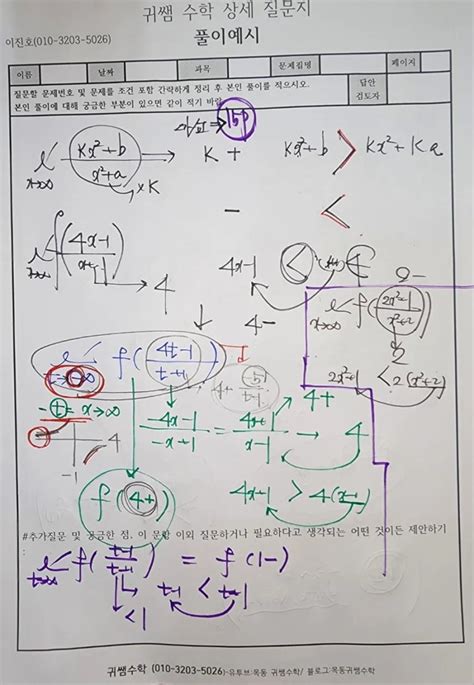 귀쌤 수학 상세 질문지
이진호(010-3203-5026)
풀이예시
이름 날짜 과목 문제집명 페이지
질문할 문제번호 및 문제를 조건 포함 간략하게 정리 후 본인 풀이를 적으시오.
본인 풀이에 대해 궁금한 부분이 있으면 같이 적기 바람
답안
검토자
x→∞ kx²+b / x²+a → k + kx²+b > kx²+ka
×k
- <
4x-1 → 4 4x-1 < 4
4-
x→∞ f(2x²-1 / x²+2)
2-
2
2x²-1 < 2(x²+2)
f(4t-1 / t+1)
-t = x→∞ -4x-1 / -x+1 = 4x+1 / x-1 → 4
4+
-1 4
f(4+) 4x+1 > 4(x-1)
#추가질문 및 궁금한 점, 이 문항 이외 질문하거나 필요하다고 생각되는 어떤 것이든 제안하기
:
f(t-1 / t+1) = f(1-)
<1 t-1 < t+1
귀쌤수학 (010-3203-5026)-유튜브:목동 귀쌤수학/ 블로그:목동귀쌤수학